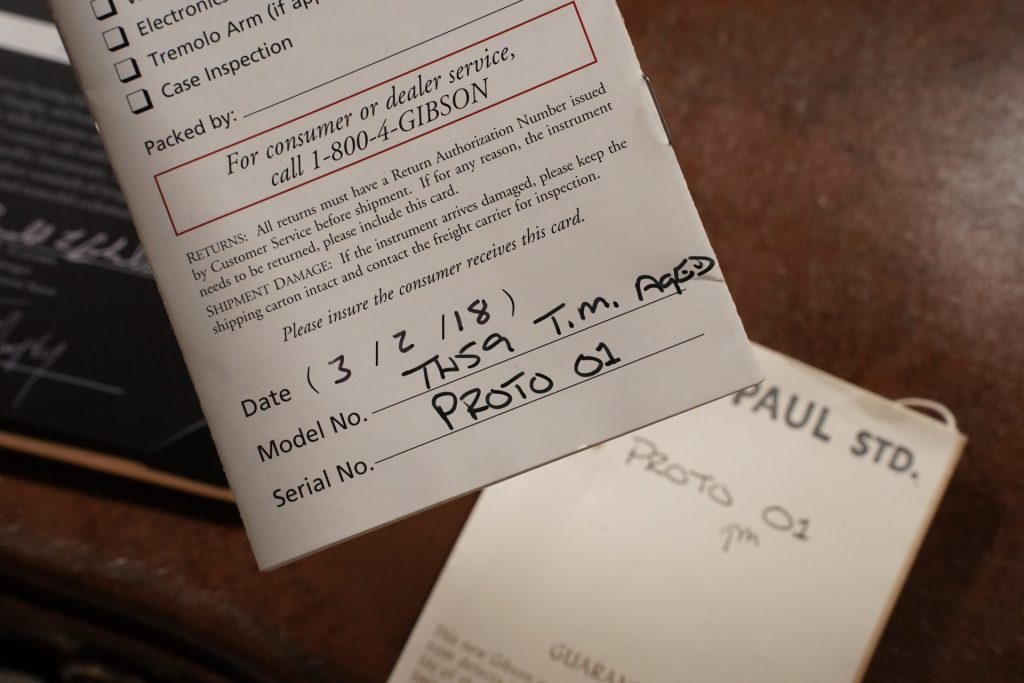 Electronics
Tremolo Arm (if
Case Inspection
Packed by:
For consumer or dealer service,
call 1-800-4-GIBSON
RETURNS: All returns must have a Return Authorization Number issued
by Customer Service before shipment. If for any reason, the instrument
needs to be returned, please include this card.
SHIPMENT DAMAGE: If the instrument arrives damaged, please keep the
shipping carton intact and contact the freight carrier for inspection.
Please insure the consumer receives this card.
Date (3/2/18)
Model No. TH59 T.M. AGED
Serial No. PROTO 01
PAUL STD.
PROTO 01
This new Gibson